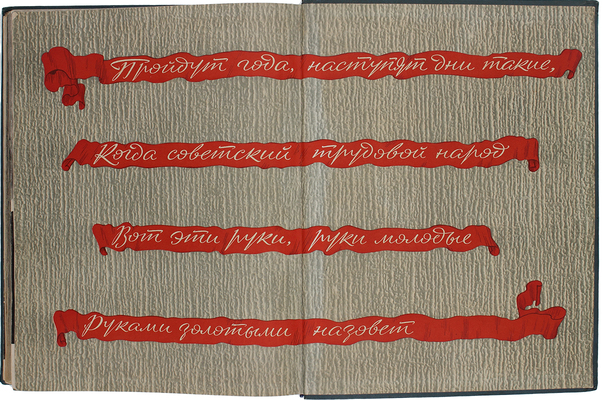 Пройдут года, наступят дни такие,
Когда советский трудовой народ
Вот эти руки, руки молодые
Руками золотыми назовет